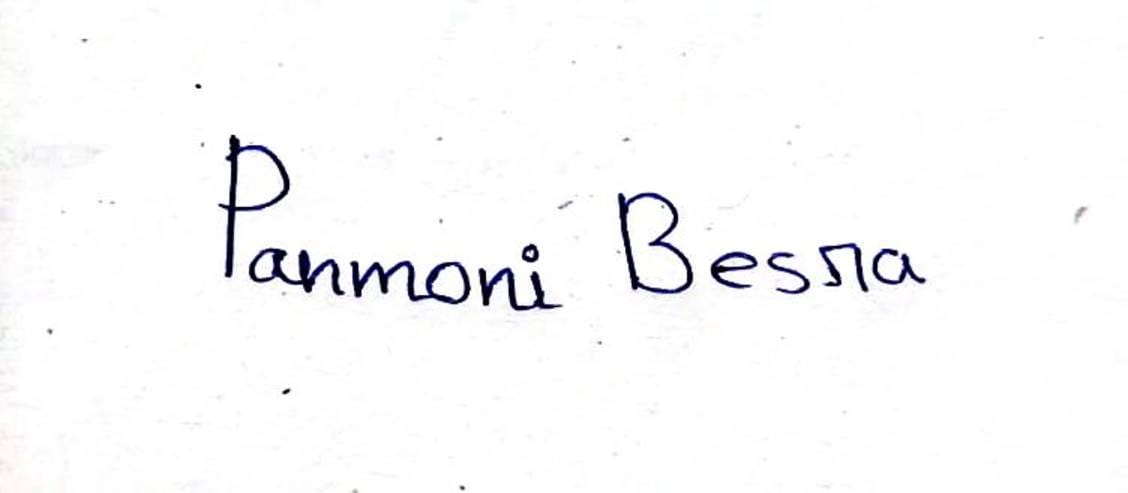 Panmoni Besra